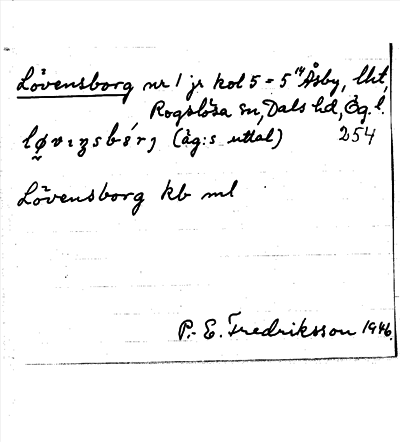 Lövensborg nr 1 jr kol 5 = 5 14 Åsby, lht,
Rogslösa sn, Dals hd, Ög. l.
(äg:s uttal) 254
Lövensborg kb ml
P.-E. Fredriksson 1946.